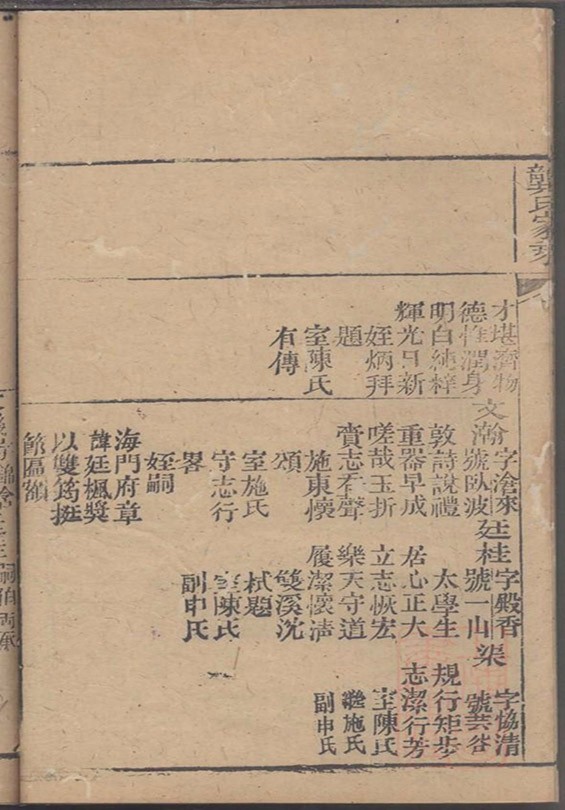 龔氏家乘
才堪濟物
德惟潤身
明白純粹
輝光日新
姪炳拜
題
室陳氏
有傳
文瀚
字滄來
號臥波
敦詩說禮
重器早成
嗟哉玉折
賫志吞聲
施東懷
頌
室施氏
守志行
畧
姪嗣
海門府章
諱廷楓獎
以雙筠挺
節匾額
廷桂
字殿香
號一山
太學生
居心正大
立志恢宏
樂天守道
履潔懷清
雙溪沈
栻題
室陳氏
副申氏
榘
字協清
號芸谷
規行矩步
志潔行芳
室陳氏
繼施氏
副申氏